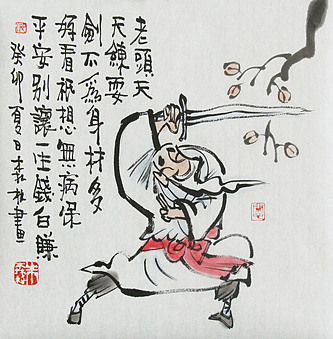 老頭天
天鍊耍
劍不為身材多
好看祇想無病保
平安別讓一生錢白賺
癸卯夏日森林畫